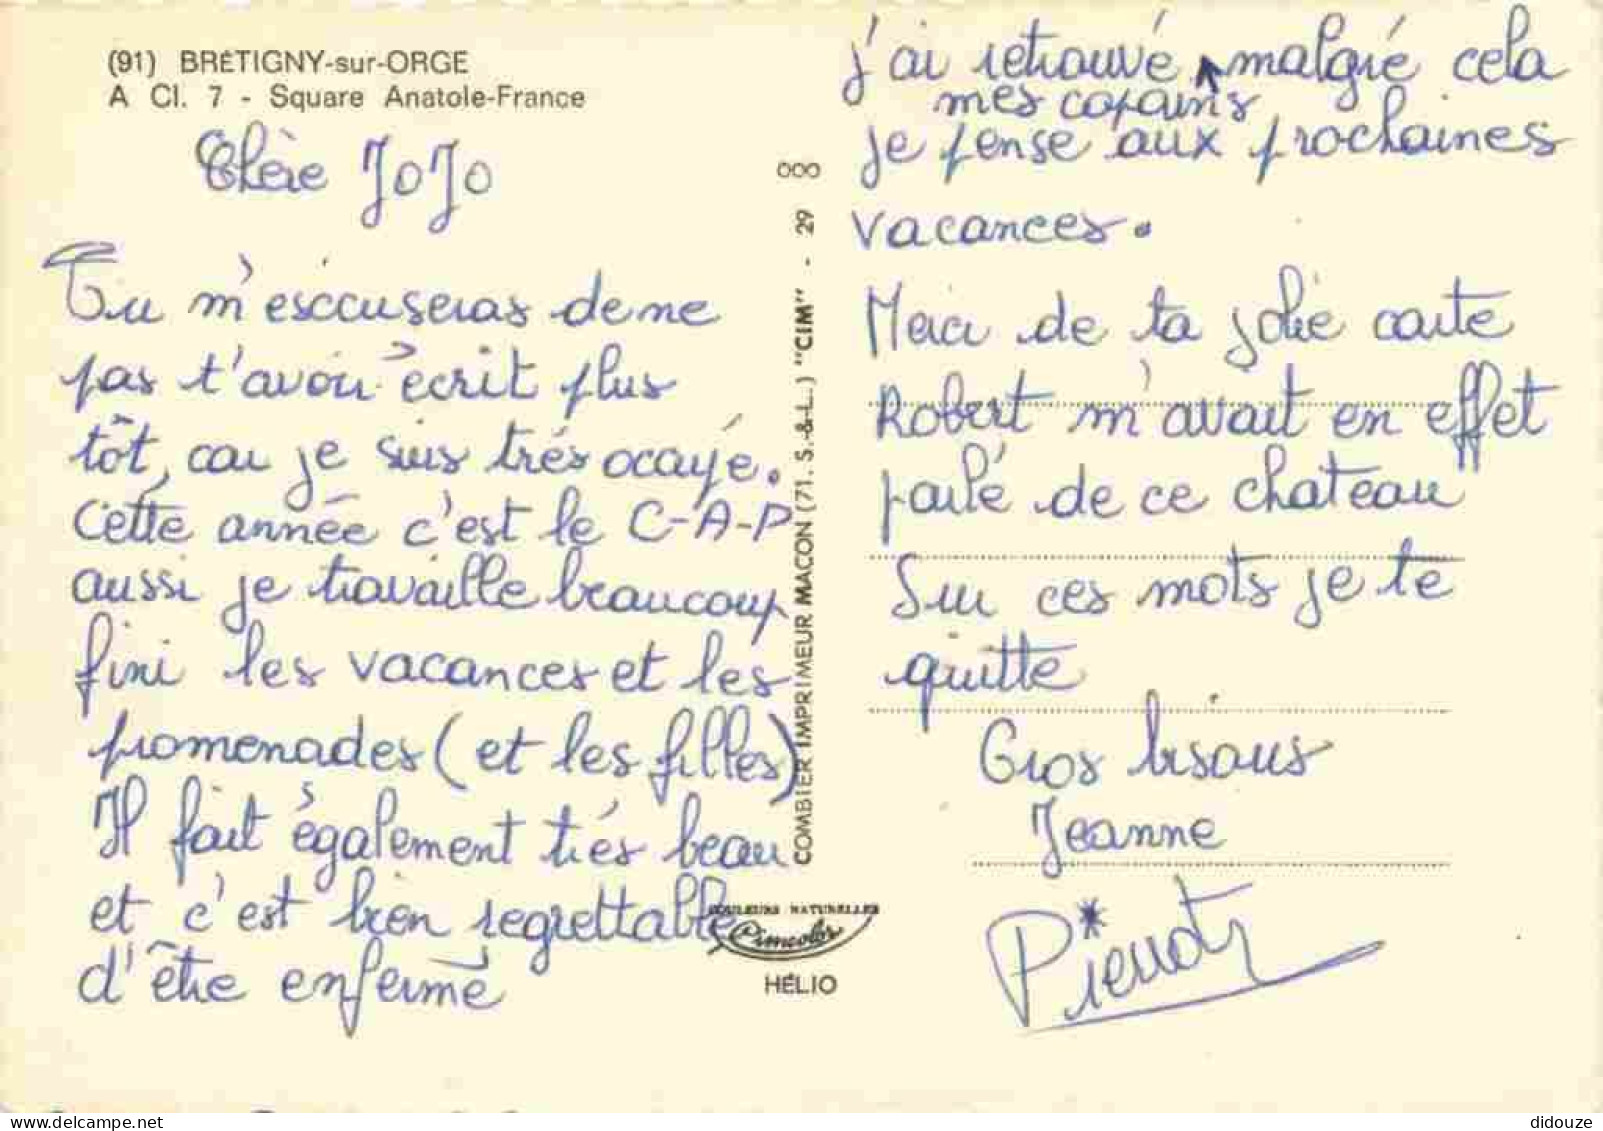 (91) BRÉTIGNY-sur-ORGE
A Cl. 7 - Square Anatole-France
Chère JoJo
Tu m'esccuseras de ne
pas t'avoir écrit plus
tôt, car je suis trés occupé.
Cette année c'est le C-A-P
aussi je travaille beaucoup
fini les vacances et les
promenades (et les filles)
Il fait également trés beau
et c'est bien regrettable
d'être enfermé
COMBIER IMPRIMEUR MACON (71. S.-&-L.) "CIM" - 29 000
COULEURS NATURELLES
Cimcolor
HÉLIO
j'ai retrouvé malgré cela
mes copains
je pense aux prochaines
vacances.
Merci de ta jolie carte
Robert m'avait en effet
parlé de ce chateau
Sur ces mots je te
quitte
Gros bisous
Jeanne
Pierrot
didouze | delcampe.net